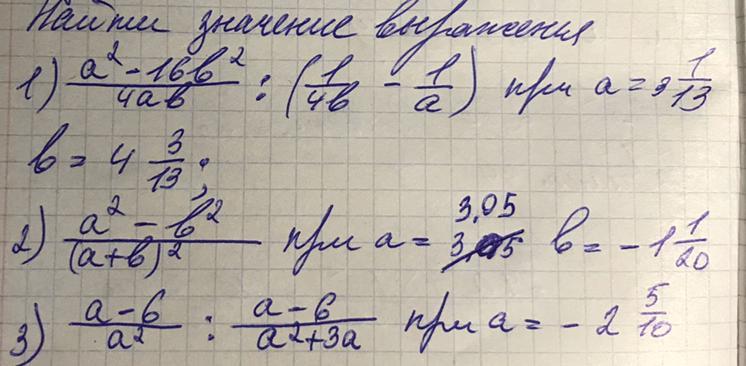 Найти значение выражения
1) (a² - 16b²)/(4ab) : (1/(4b) - 1/a) при a = 3 1/13
b = 4 3/13;
2) (a² - b²)/(a+b)² при a = 3,05 b = -1 1/20
3) (a-6)/a² : (a-6)/(a²+3a) при a = -2 5/10